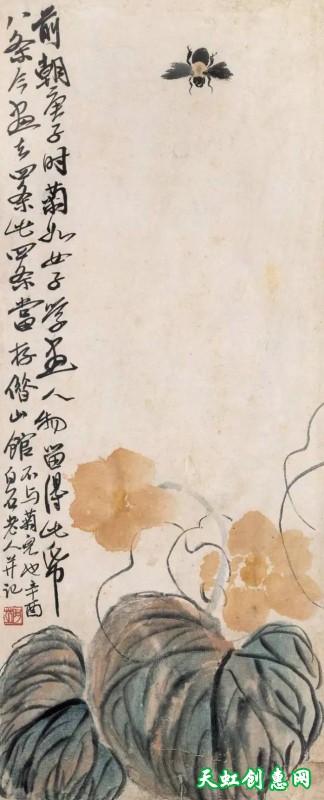 前朝庚子时菊如女子学画人物留得此帋
八条今画去四条此四条當存借山館
不与菊儿也辛酉
白石老人并记
天虹创惠网